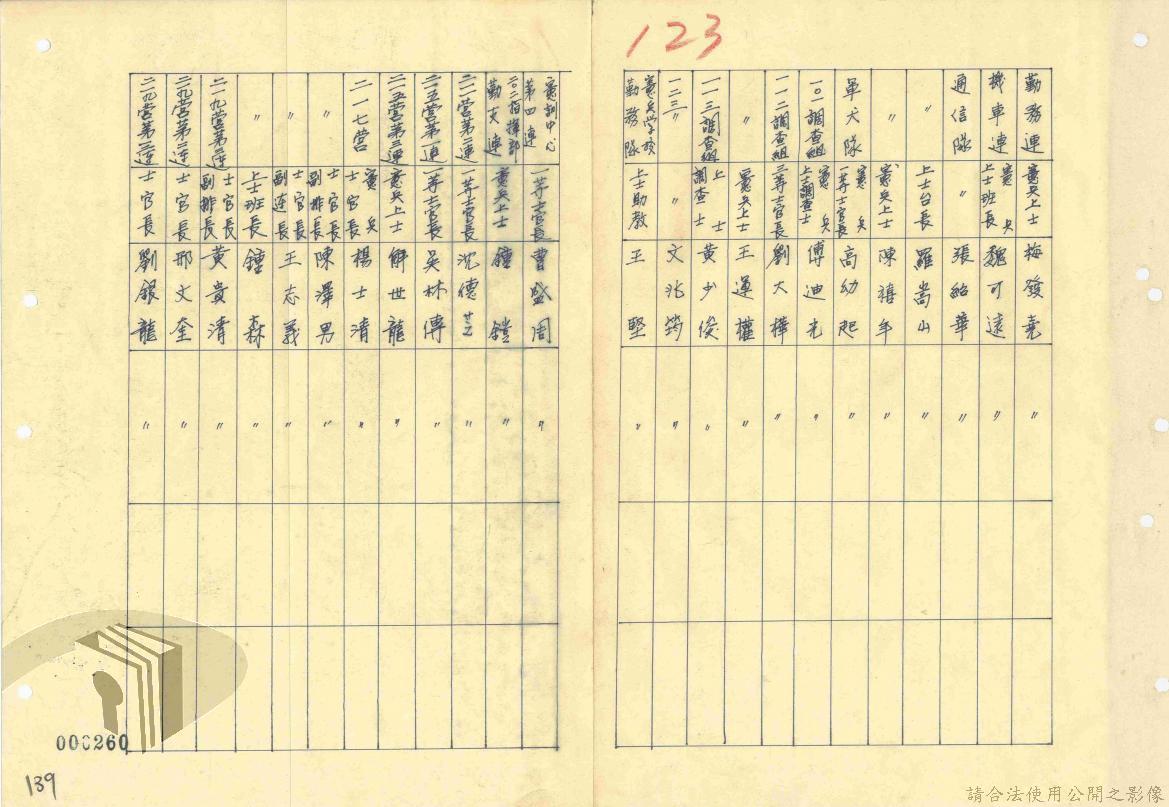 123
勤務連 憲兵上士 梅發堯 〃
機車連 憲兵上士班長 魏可遠 〃
通信隊 〃 張紹華 〃
〃 上士台長 羅嵩山 〃
〃 憲兵上士 陳禧年 〃
軍犬隊 憲兵一等士官長 高幼起 〃
一〇一調查組 憲兵上士調查士 傅迪光 〃
一一二調查組 三等士官長 劉大樺 〃
〃 憲兵上士 王運權 〃
一一三調查組 上士調查士 黃少俊 〃
一二三〃 〃 文兆筠 〃
憲兵學校勤務隊 上士助教 王堅 〃
憲訓中心第四連 一等士官長 曹盛周 〃
二〇二指揮部勤支連 憲兵上士 鍾鎧 〃
二一一營第二連 一等士官長 沈德 〃
二一五營第一連 一等士官長 吳林傳 〃
二一五營第三連 憲兵上士 解世龍 〃
二一七營 憲兵士官長 楊士清 〃
〃 士官長副排長 陳澤男 〃
〃 士官長副連長 王志義 〃
〃 上士班長 鍾森 〃
二一九營第三連 士官長副排長 黃貴清 〃
二一九營第二連 士官長 邢文奎 〃
二一九營第二連 士官長 劉銀龍 〃
000260
139
請合法使用公開之影像